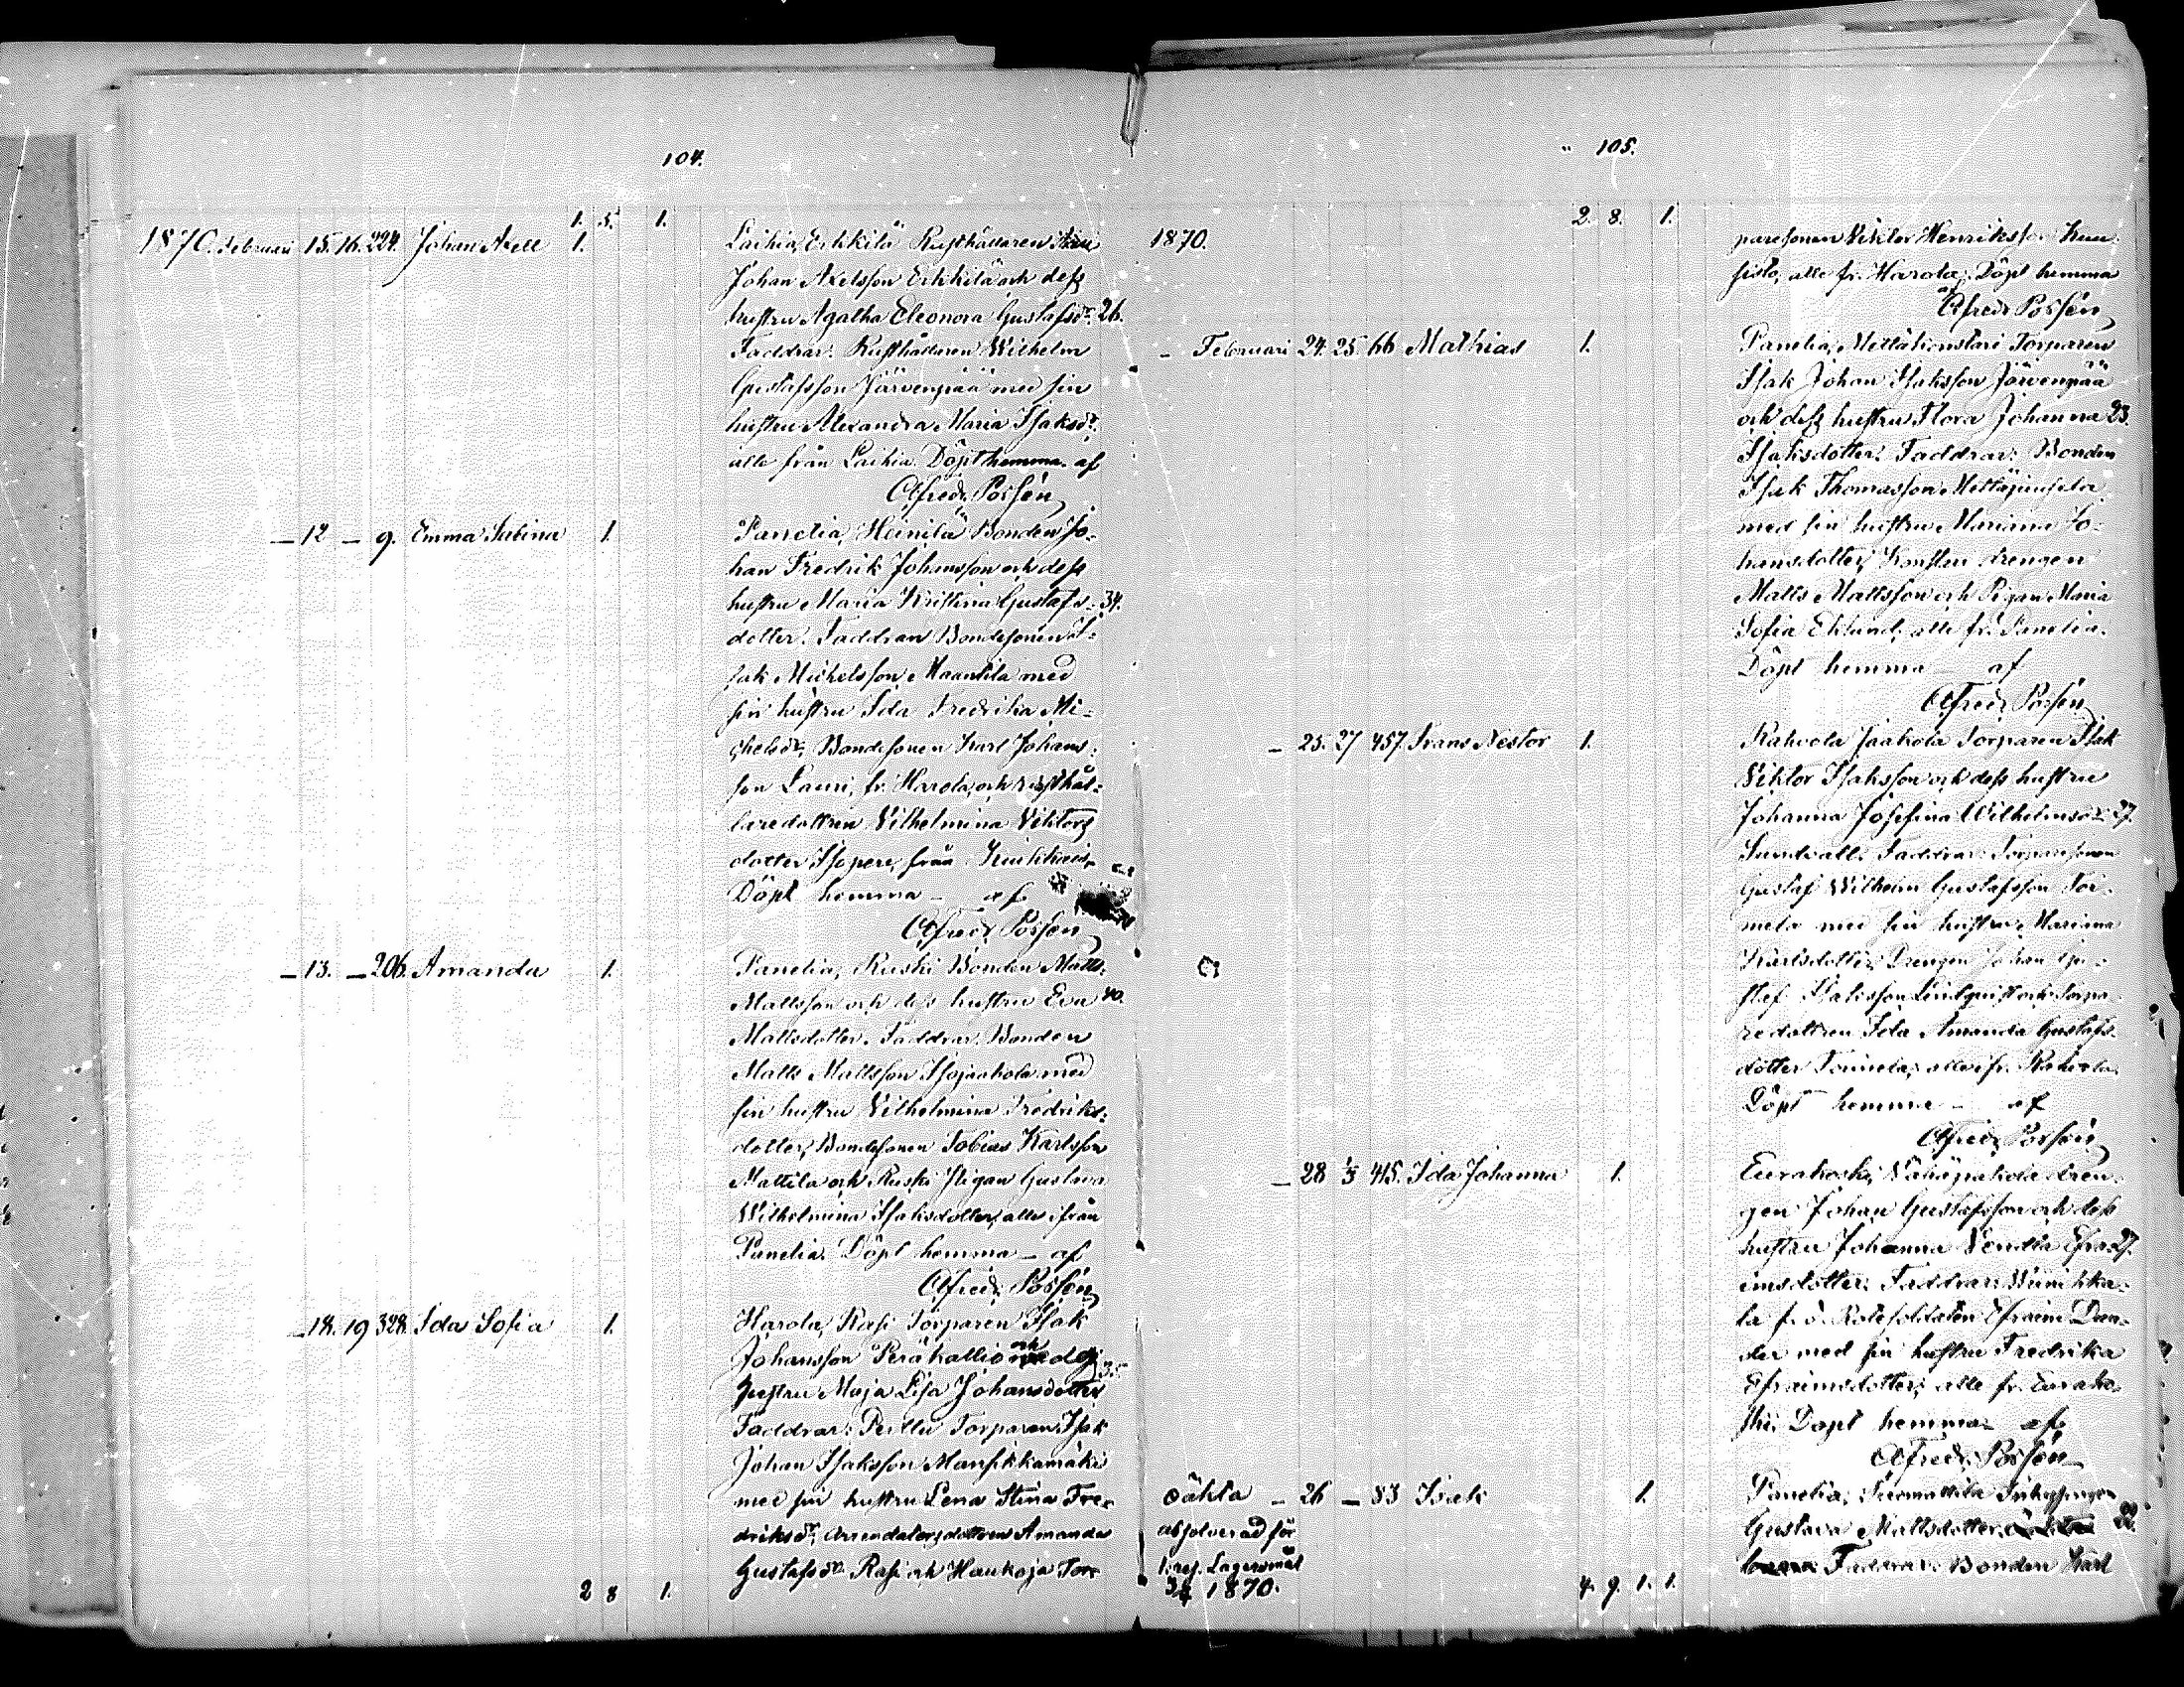 104.
1. 5. 1.
1870. Februari 15. 16. 224. Johan Axell 1. Laihia, Erkkilä Rusthållaren
Johan Axelsson Erkkilä och dess
hustru Agatha Eleonora Gustafsdr. 26.
Faddrar: Rusthållaren Wilhelm
Gustafsson Järvenpää med sin
hustru Alexandra Maria Isaksdr.
alle från Laihia. Döpt hemma af
Alfred Possén
— 12 — 9. Emma Sabina 1. Panelia, Heinilä Bonden Jo-
han Fredrik Johansson och dess
hustru Maria Kristina Gustafs- 34.
dotter. Faddrar Bondesonen I-
sak Michelsson Maantila med
sin hustru Ida Fredrika Mi-
chelsdr, Bondesonen Karl Johans-
son Lauri, fr. Harola, och rusthål-
laredottren Vilhelmina Viktors
dotter Isopere, från
Döpt hemma — af
Alfred Possén
— 13. — 206. Amanda 1. Panelia, Ruski Bonden Matts
Mattsson och dess hustru Eva 40.
Mattsdotter. Faddrar: Bonden
Matts Mattsson Isojaakola med
sin hustru Vilhelmina Fredriks-
dotter, Bondesonen Tobias Karlsson
Mattila och Ruski Pigan Gustava
Wilhelmina Isaksdotter, alle ifrån
Panelia. Döpt hemma — af
Alfred Possén
— 18. 19 328. Ida Sofia 1. Harola, Rasi Torparen Isak
Johansson Peräkallio och dess 35.
hustru Maja Lisa Johansdotter
Faddrar: Perttu Torparen Isak
Johan Isaksson Mansikkamäki
med sin hustru Lena Stina Fre-
driksdr, Arrendatorsdottren Amanda
Gustafsdr. Rasi och Haukoja Tor-
2 8 1.
105.
2. 8. 1.
1870. paresonen Viktor Henriksson Kuu-
sisto, alle fr. Harola. Döpt hemma
af
Alfred Possén
— Februari 24. 25. 66 Mathias 1. Panelia, Mettäkonstari Torparen
Isak Johan Isaksson Järvenpää
och dess hustru Flora Johanna 23.
Isaksdotter. Faddrar: Bonden
Isak Thomasson
med sin hustru Mariana Jo-
hansdotter, Konstari drengen
Matts Mattsson och Pigan Maria
Sofia Eklund, alle fr. Panelia.
Döpt hemma — af
Alfred Possén
— 25. 27 457. Frans Nestor 1. Rahvola Jaakola Torparen Isak
Viktor Isaksson och dess hustru
Johanna Josefina Wilhelmsdr 27.
Sundvall. Faddrar: Torparesonen
Gustaf Wilhelm Gustafsson Tor-
mela med sin hustru Mariana
Karlsdotter, Drengen Johan Gu-
staf Isaksson Lindqvist och Torpa-
redottren Ida Amanda Gustafs-
dotter alle fr. Rahvola.
Döpt hemma — af
Alfred Possén
— 28 1/3 415. Ida Johanna 1. Eurakoski, Vähäpakola dren-
gen Johan Gustafsson och dess
hustru Johanna Vendla Efra- 27.
imsdotter. Faddrar:
la f. d. Rotesoldaten Efraim Dan-
der med sin hustru Fredrika
Efraimsdotter, alle fr. Eurako-
ski. Döpt hemma — af
Alfred Possén
oäkta — 26 — 83 Isak 1. Panelia,
absolverad för Gustava Mattsdotter 22.
1. res. Lägersmål Faddrar: Bonden Karl
1870. 4. 9. 1. 1.